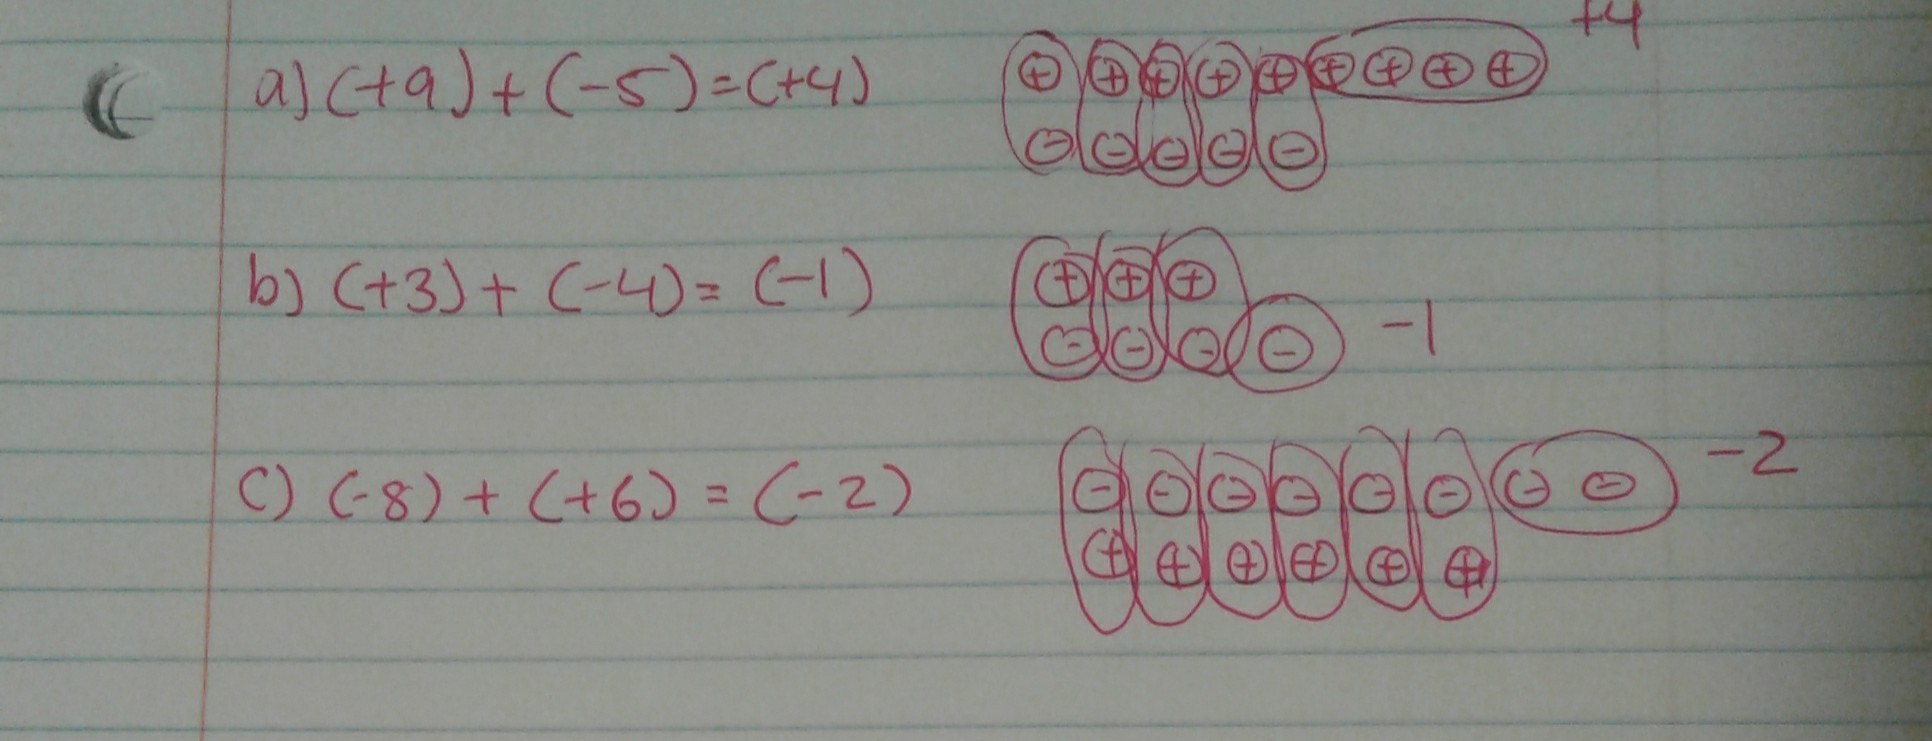 a) (+9) + (-5) = (+4) ⊕ ⊕ ⊕ ⊕ ⊕ ⊕ ⊕ ⊕ ⊕ +4
⊖ ⊖ ⊖ ⊖ ⊖
b) (+3) + (-4) = (-1) ⊕ ⊕ ⊕
⊖ ⊖ ⊖ ⊖ -1
c) (-8) + (+6) = (-2) ⊖ ⊖ ⊖ ⊖ ⊖ ⊖ ⊖ ⊖ -2
⊕ ⊕ ⊕ ⊕ ⊕ ⊕